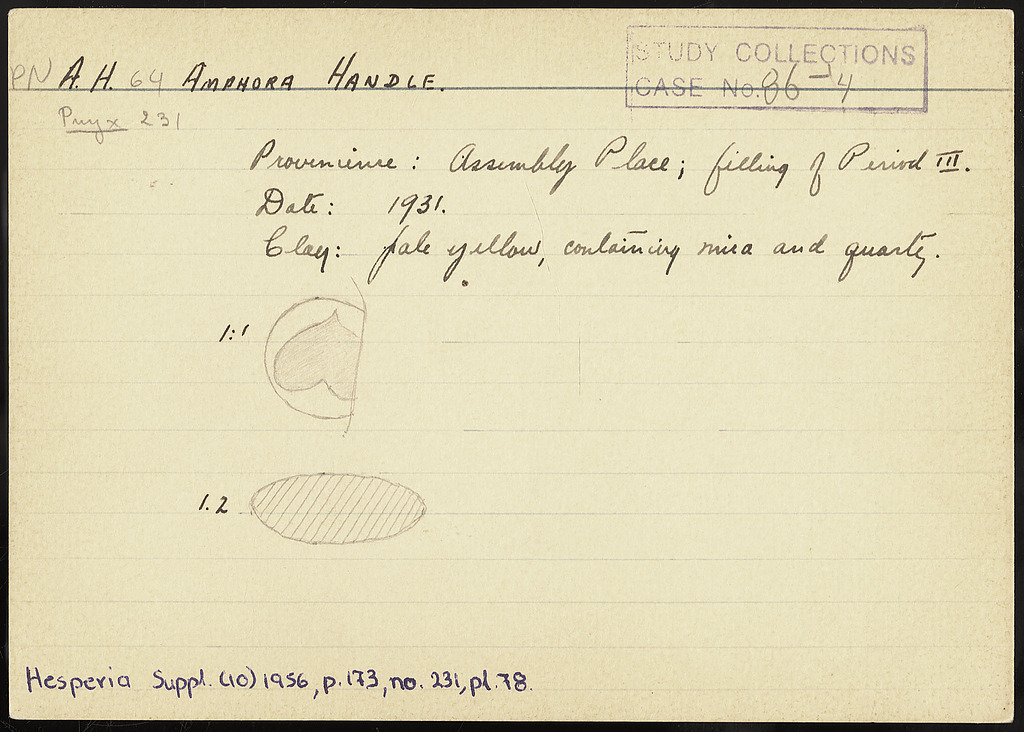 STUDY COLLECTIONS
CASE No. 86-14
PN A.H. 64 AMPHORA HANDLE.
Pnyx 231
Provenience: Assembly Place; filling of Period III.
Date: 1931.
Clay: pale yellow, containing mica and quartz.
1:1
1.2
Hesperia Suppl. (10) 1956, p. 173, no. 231, pl. 78.